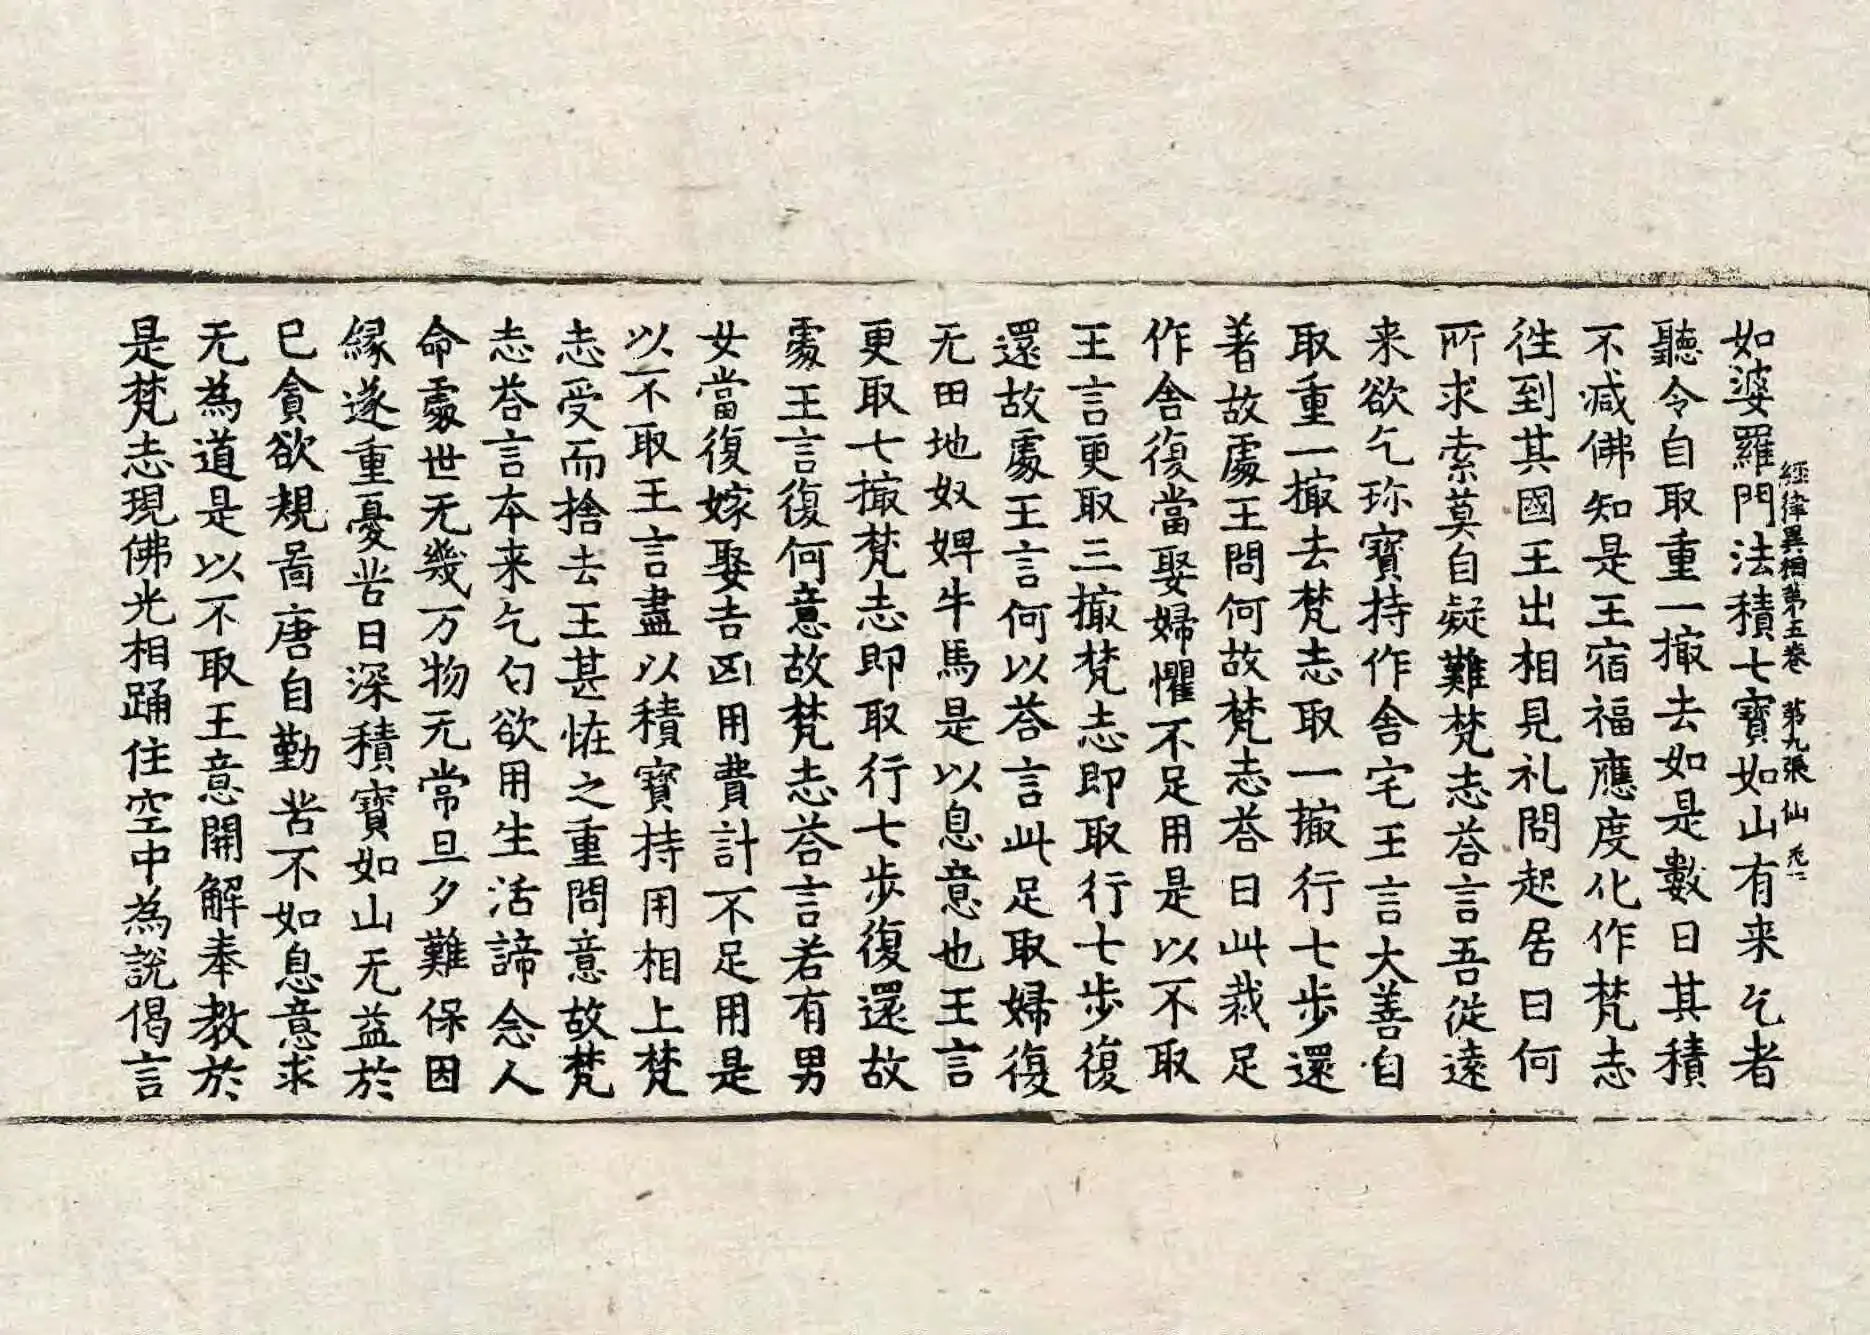 經律異相第五卷 第九張 仙
如婆羅門法積七寶如山有来乞者
聽令自取重一撮去如是數日其積
不減佛知是王宿福應度化作梵志
往到其國王出相見礼問起居曰何
所求索莫自疑難梵志荅言吾従遠
来欲乞珎寶持作舍宅王言大善自
取重一撮去梵志取一撮行七步還
著故處王問何故梵志荅曰此裁足
作舍復當娶婦懼不足用是以不取
王言更取三撮梵志即取行七步復
還故處王言何以荅言此足取婦復
无田地奴婢牛馬是以息意也王言
更取七撮梵志即取行七步復還故
處王言復何意故梵志荅言若有男
女當復嫁娶吉凶用費計不足用是
以不取王言盡以積寶持用相上梵
志受而捨去王甚怪之重問意故梵
志荅言本来乞匃欲用生活諦念人
命處世无幾万物无常旦夕難保因
縁遂重憂苦日深積寶如山无益於
已貪欲規啚唐自勤苦不如息意求
无為道是以不取王意開解奉教於
是梵志現佛光相踊住空中為說偈言